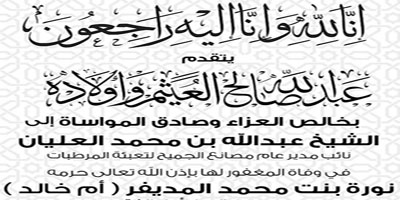 إنا لله وإنا إليه راجعون
يتقدم
عبدالله صالح العثيم وأولاده
بخالص العزاء وصادق المواساة إلى
الشيخ عبدالله بن محمد العليان
نائب مدير عام مصانع الجميح لتعبئة المرطبات
في وفاة المغفور لها بإذن الله تعالى حرمه
نورة بنت محمد المديفر ( أم خالد )